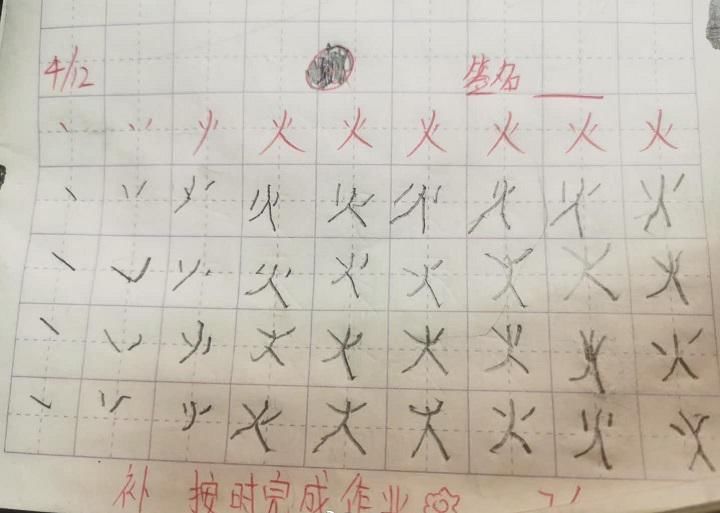 4/12 签名
丶 丷 少 火 火 火 火 火 火
丶 丷 火 火 火 火 火 火
丶 丷 火 火 火 火 火 火
丶 丷 火 火 火 火 火 火
丶 丷 火 火 火 火 火 火
补 按时完成作业